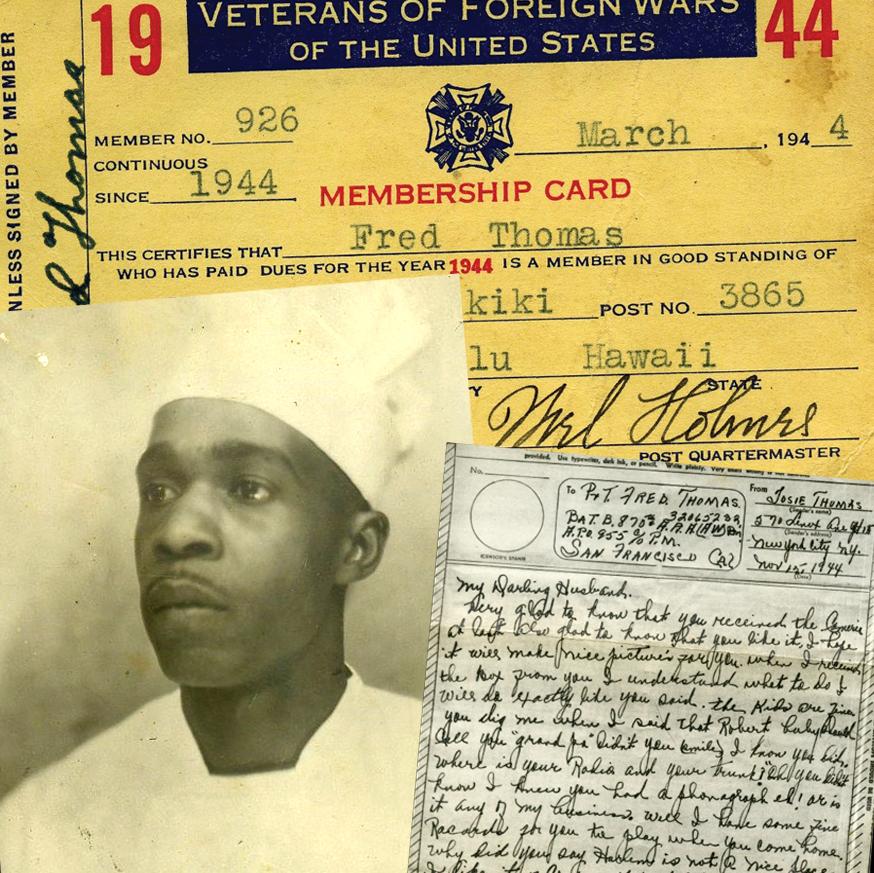 19 VETERANS OF FOREIGN WARS 44
OF THE UNITED STATES
NLESS SIGNED BY MEMBER
d Thomas
MEMBER NO. 926
March, 194 4
CONTINUOUS
SINCE 1944
MEMBERSHIP CARD
THIS CERTIFIES THAT Fred Thomas
WHO HAS PAID DUES FOR THE YEAR 1944 IS A MEMBER IN GOOD STANDING OF
kiki POST NO. 3865
lu Hawaii
Y STATE
Mel Holmes
POST QUARTERMASTER
provided. Use typewriter, dark ink, or pencil. Write plainly. Very
No.
(CENSOR'S STAMP)
To PVT. FRED THOMAS.
32065232
BAT. B. 870th A.A.A.(AW)Bn
A.P.O. 955 % P.M.
SAN FRANCISCO CAL
From JOSIE THOMAS
(Sender's name)
570 Lenox Ave
(Sender's address)
New York City N.Y.
Nov 15, 1944
(Date)
My Darling Husband.
Very glad to know that you received the Camera
at last Also glad to know that you like it, I hope
it will make nice pictures for you. when I receive
the Box from you I understand what to do I
will do exactly like you said. the Kids are fine
you dig me when I said that Robert baby should
call you "grand pa" didn't you (smile) I know you did.
where is your Radio and your trunk? Oh you didn't
know I knew you had a phonograph eh! or is
it any of my business. well I have some fine
Records for you to play when you come home.
why did you say Harlem is not a nice place
I like it